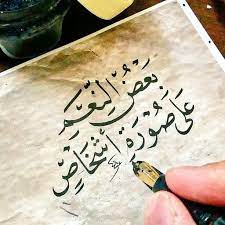 بَعْضُ النِّعَمِ
عَلَى صُورَةِ أَشْخَاصٍ